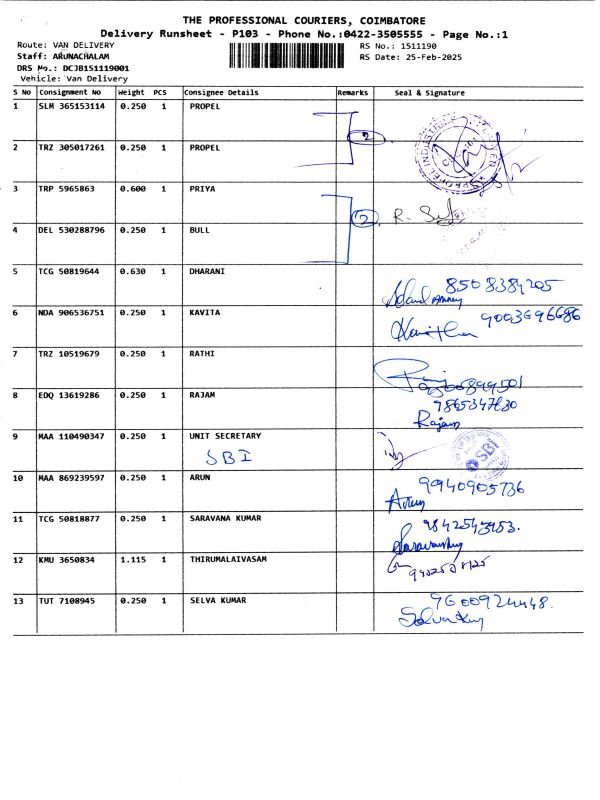 THE PROFESSIONAL COURIERS, COIMBATORE
Delivery Runsheet - P103 - Phone No.:0422-3505555 - Page No.:1
Route: VAN DELIVERY RS No.: 1511190
Staff: ARUNACHALAM RS Date: 25-Feb-2025
DRS No.: DCJB151119001
Vehicle: Van Delivery
S No Consignment No Weight PCS Consignee Details Remarks Seal & Signature
1 SLM 365153114 0.250 1 PROPEL
2
2 TRZ 305017261 0.250 1 PROPEL
3 TRP 5965863 0.600 1 PRIYA
2 R.
4 DEL 530288796 0.250 1 BULL
5 TCG 50819644 0.630 1 DHARANI
8508384205
6 NDA 906536751 0.250 1 KAVITA 9003696686
7 TRZ 10519679 0.250 1 RATHI
8 EDQ 13619286 0.250 1 RAJAM
Rajam
9 MAA 110490347 0.250 1 UNIT SECRETARY
SBI SBI
10 MAA 869239597 0.250 1 ARUN 9940905736
11 TCG 50818877 0.250 1 SARAVANA KUMAR
12 KMU 3650834 1.115 1 THIRUMALAIVASAM
13 TUT 7108945 0.250 1 SELVA KUMAR 9600924448.